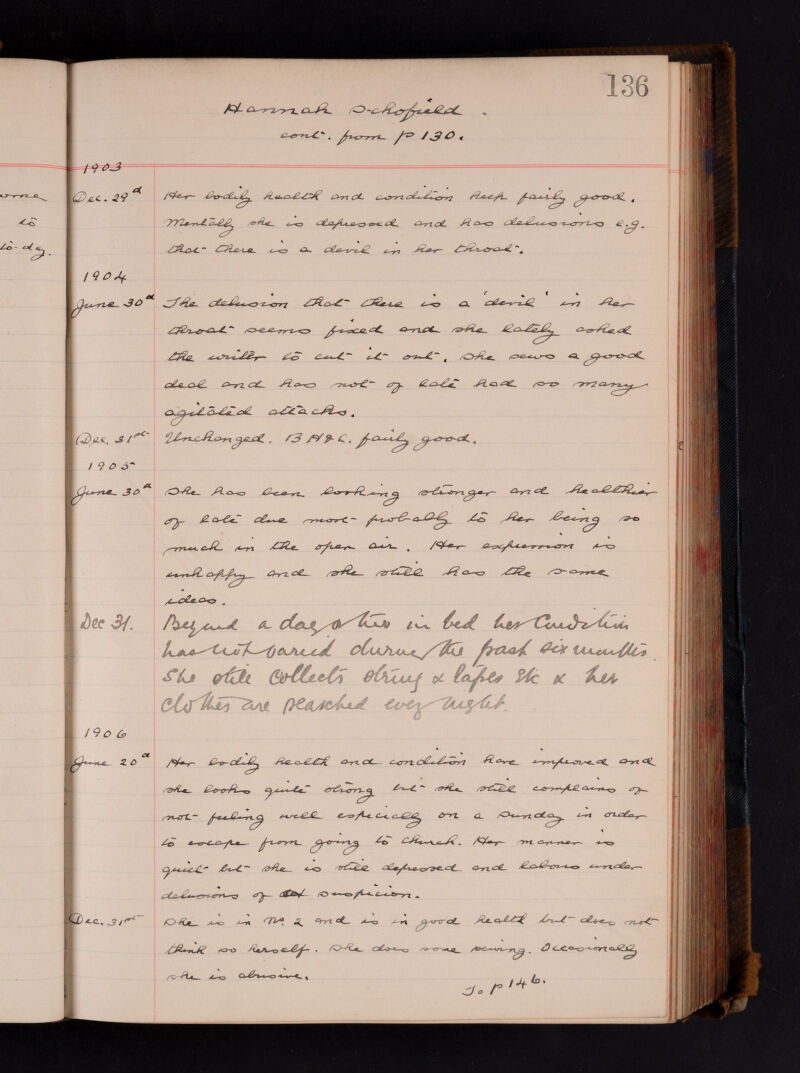 136
Hannah Schofield.
cont. from p 130.
1903
Dec. 29d Her bodily health and condition keep fairly good.
Mentally she is depressed and has delusions e.g.
that there is a devil in her throat.
1904
June 30d The delusion that there is a 'devil' in her
throat seems fixed and she lately asked
the writer to cut it out. She sews a good
deal and has not of late had so many
agitated attacks.
Dec. 31st Unchanged. B H & C. fairly good.
1905
June 30d She has been looking stronger and healthier
of late due most probably to her being so
much in the open air. Her expression is
unhappy and she still has the same
ideas.
Dec 31. Beyond a day or two in bed her Condition
has not varied during the past six months.
She still collects string & tapes Etc & her
clothes are searched every night.
1906
June 20d Her bodily health and condition have improved and
she looks quite strong but she still complains of
not feeling well especially on a Sunday in order
to escape from going to church. Her manner is
quiet but she is still depressed and labours under
delusions of suspicion.
Dec. 31st She is in No. 2 and is in good health but does not
think so herself. She does some sewing. Occasionally
she is abusive.
To p 146.
to
to-day.